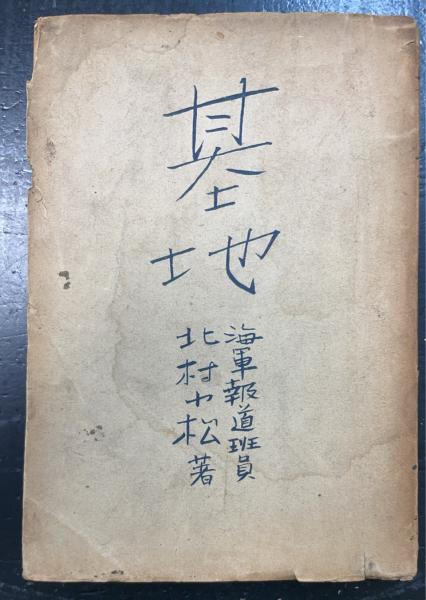 基地
海軍報道班員
北村小松著